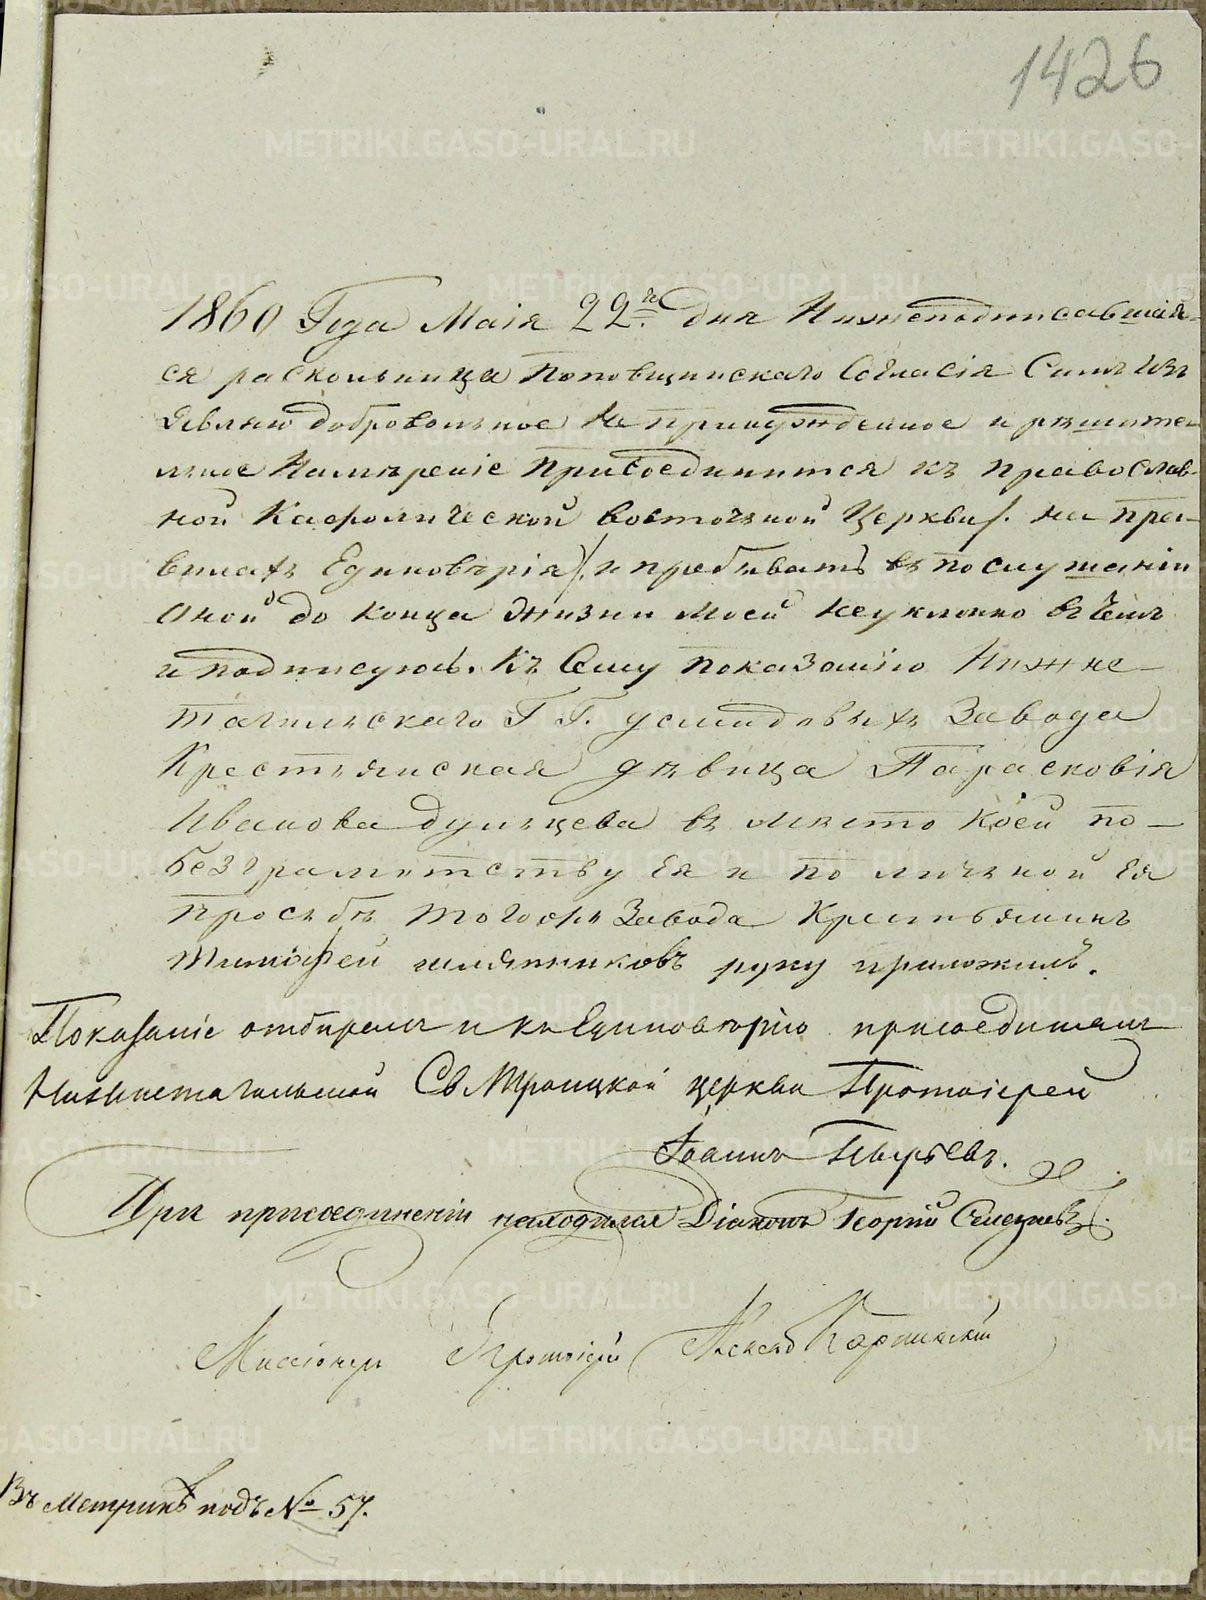 1426
1860 Года Маія 22го дня Нижеподписавшая-
ся раскольница Поповщинскаго Согласія Симъ Изъ
являю добровольное не принужденное и рѣшите-
льное Намѣреніе присоединится къ православ-
ной Кафолической восточной Церкви/. на пра-
вилахъ Единовѣрія/. и пребывать въ послушаніи
Оной до конца Жизни Моей неуклонно въ чемъ
и подписуюсь. Къ Сему показанію Нижне-
тагильскаго Г.Г. Демидовыхъ Завода
Крестьянская дѣвица Парасковія
Иванова дульцева в место коей по-
безграмотству Ея и по личной Ея
прозьбѣ того жъ Завода Крестьянинъ
Тимофей шляпниковъ руку приложилъ.
Показаніе отбиралъ и къ Единовѣрію присоединялъ
Нижнетагильской Св Троицкой церкви Протоіерей
Іоаннъ
При присоединеніи находился Діаконъ Георгій Селезневъ.
Миссіонеръ Протоіерей Александ
Въ Метрикѣ подъ № 57.
METRIKI.GASO-URAL.RU